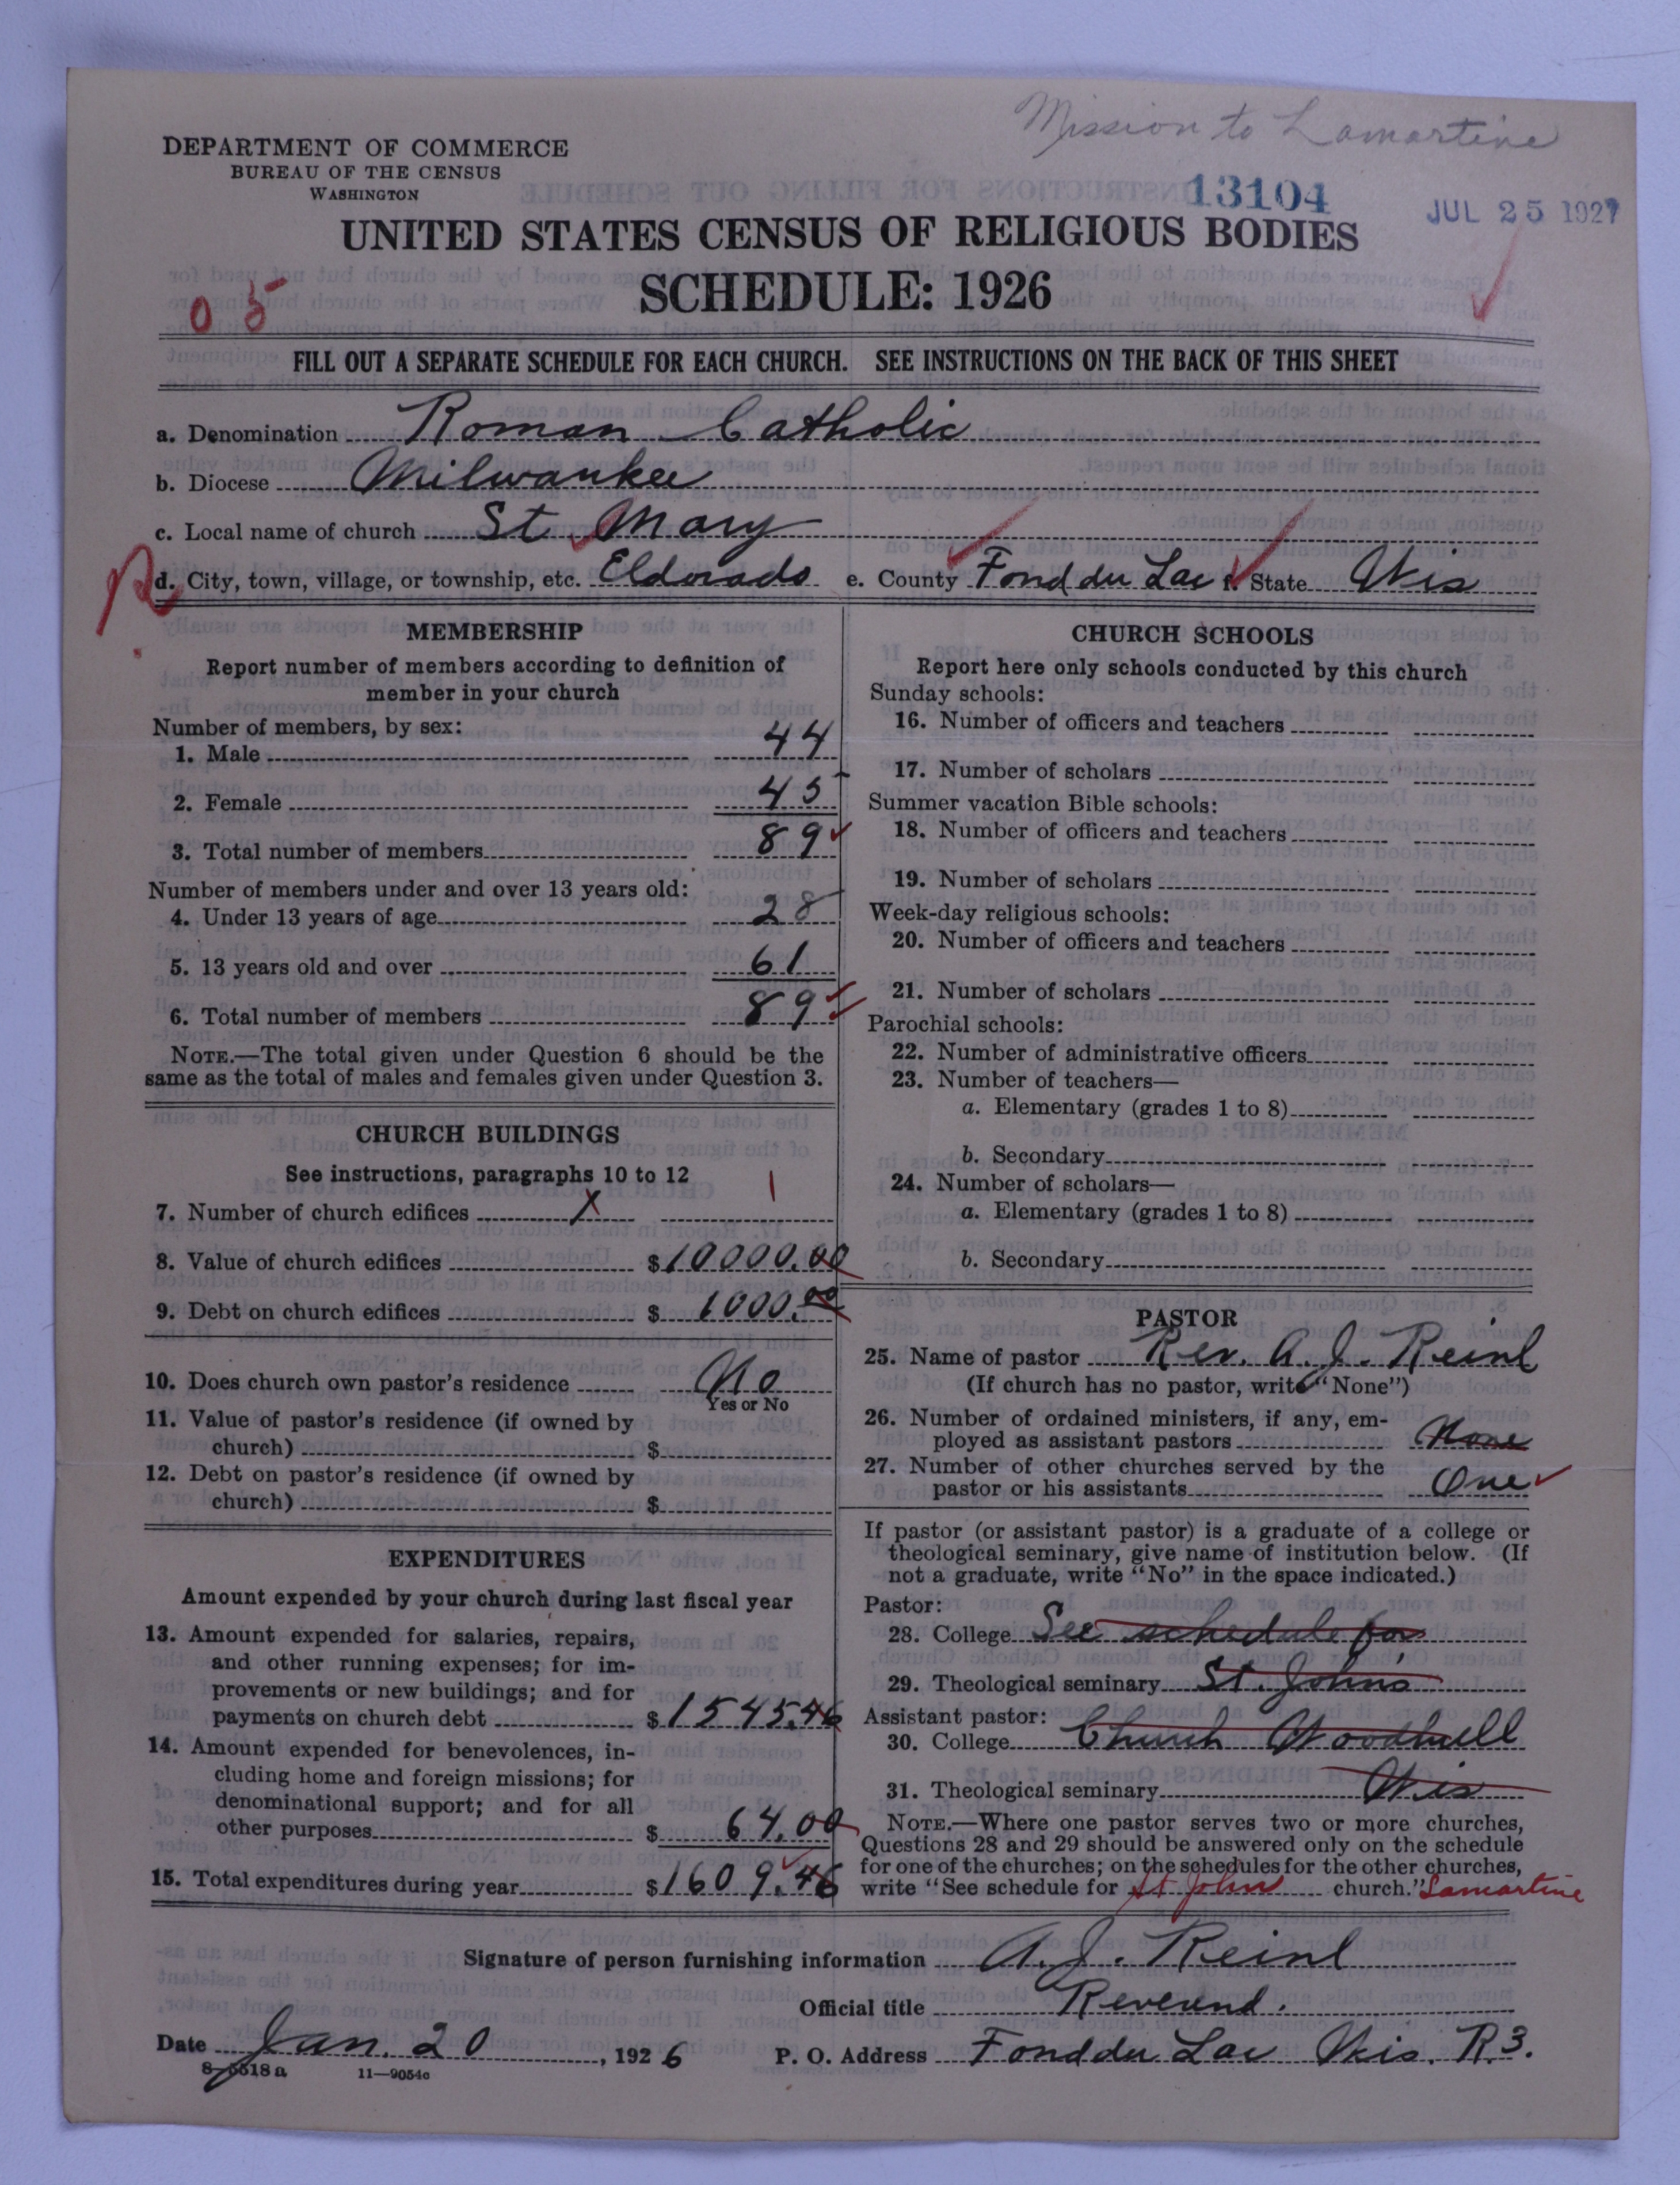 Mission to Lamartine
DEPARTMENT OF COMMERCE
BUREAU OF THE CENSUS
WASHINGTON
13104
JUL 25 1927
UNITED STATES CENSUS OF RELIGIOUS BODIES
SCHEDULE: 1926
05
FILL OUT A SEPARATE SCHEDULE FOR EACH CHURCH. SEE INSTRUCTIONS ON THE BACK OF THIS SHEET
a. Denomination Roman Catholic
b. Diocese Milwaukee
c. Local name of church St Mary
d. City, town, village, or township, etc. Eldorado e. County Fond du Lac f. State Wis
MEMBERSHIP
Report number of members according to definition of
member in your church
Number of members, by sex:
1. Male 44
2. Female 45
3. Total number of members 89
Number of members under and over 13 years old:
4. Under 13 years of age 28
5. 13 years old and over 61
6. Total number of members 89
NOTE.—The total given under Question 6 should be the
same as the total of males and females given under Question 3.
CHURCH BUILDINGS
See instructions, paragraphs 10 to 12
7. Number of church edifices X 1
8. Value of church edifices $10000.00
9. Debt on church edifices $ 1000.00
10. Does church own pastor's residence No
Yes or No
11. Value of pastor's residence (if owned by
church) $
12. Debt on pastor's residence (if owned by
church) $
EXPENDITURES
Amount expended by your church during last fiscal year
13. Amount expended for salaries, repairs,
and other running expenses; for im-
provements or new buildings; and for
payments on church debt $1545.46
14. Amount expended for benevolences, in-
cluding home and foreign missions; for
denominational support; and for all
other purposes $ 64.00
15. Total expenditures during year $1609.46
CHURCH SCHOOLS
Report here only schools conducted by this church
Sunday schools:
16. Number of officers and teachers
17. Number of scholars
Summer vacation Bible schools:
18. Number of officers and teachers
19. Number of scholars
Week-day religious schools:
20. Number of officers and teachers
21. Number of scholars
Parochial schools:
22. Number of administrative officers
23. Number of teachers—
a. Elementary (grades 1 to 8)
b. Secondary
24. Number of scholars—
a. Elementary (grades 1 to 8)
b. Secondary
PASTOR
25. Name of pastor Rev. A. J. Reinl
(If church has no pastor, write "None")
26. Number of ordained ministers, if any, em-
ployed as assistant pastors None
27. Number of other churches served by the
pastor or his assistants One
If pastor (or assistant pastor) is a graduate of a college or
theological seminary, give name of institution below. (If
not a graduate, write "No" in the space indicated.)
Pastor:
28. College See schedule for
29. Theological seminary St. John's
Assistant pastor:
30. College Church Woodhull
31. Theological seminary Wis
NOTE.—Where one pastor serves two or more churches,
Questions 28 and 29 should be answered only on the schedule
for one of the churches; on the schedules for the other churches,
write "See schedule for St John church." Lamartine
Signature of person furnishing information A. J. Reinl
Official title Reverend.
Date Jan. 20, 1926 P. O. Address Fond du Lac Wis. R. 3.
8-5518a 11—9054c